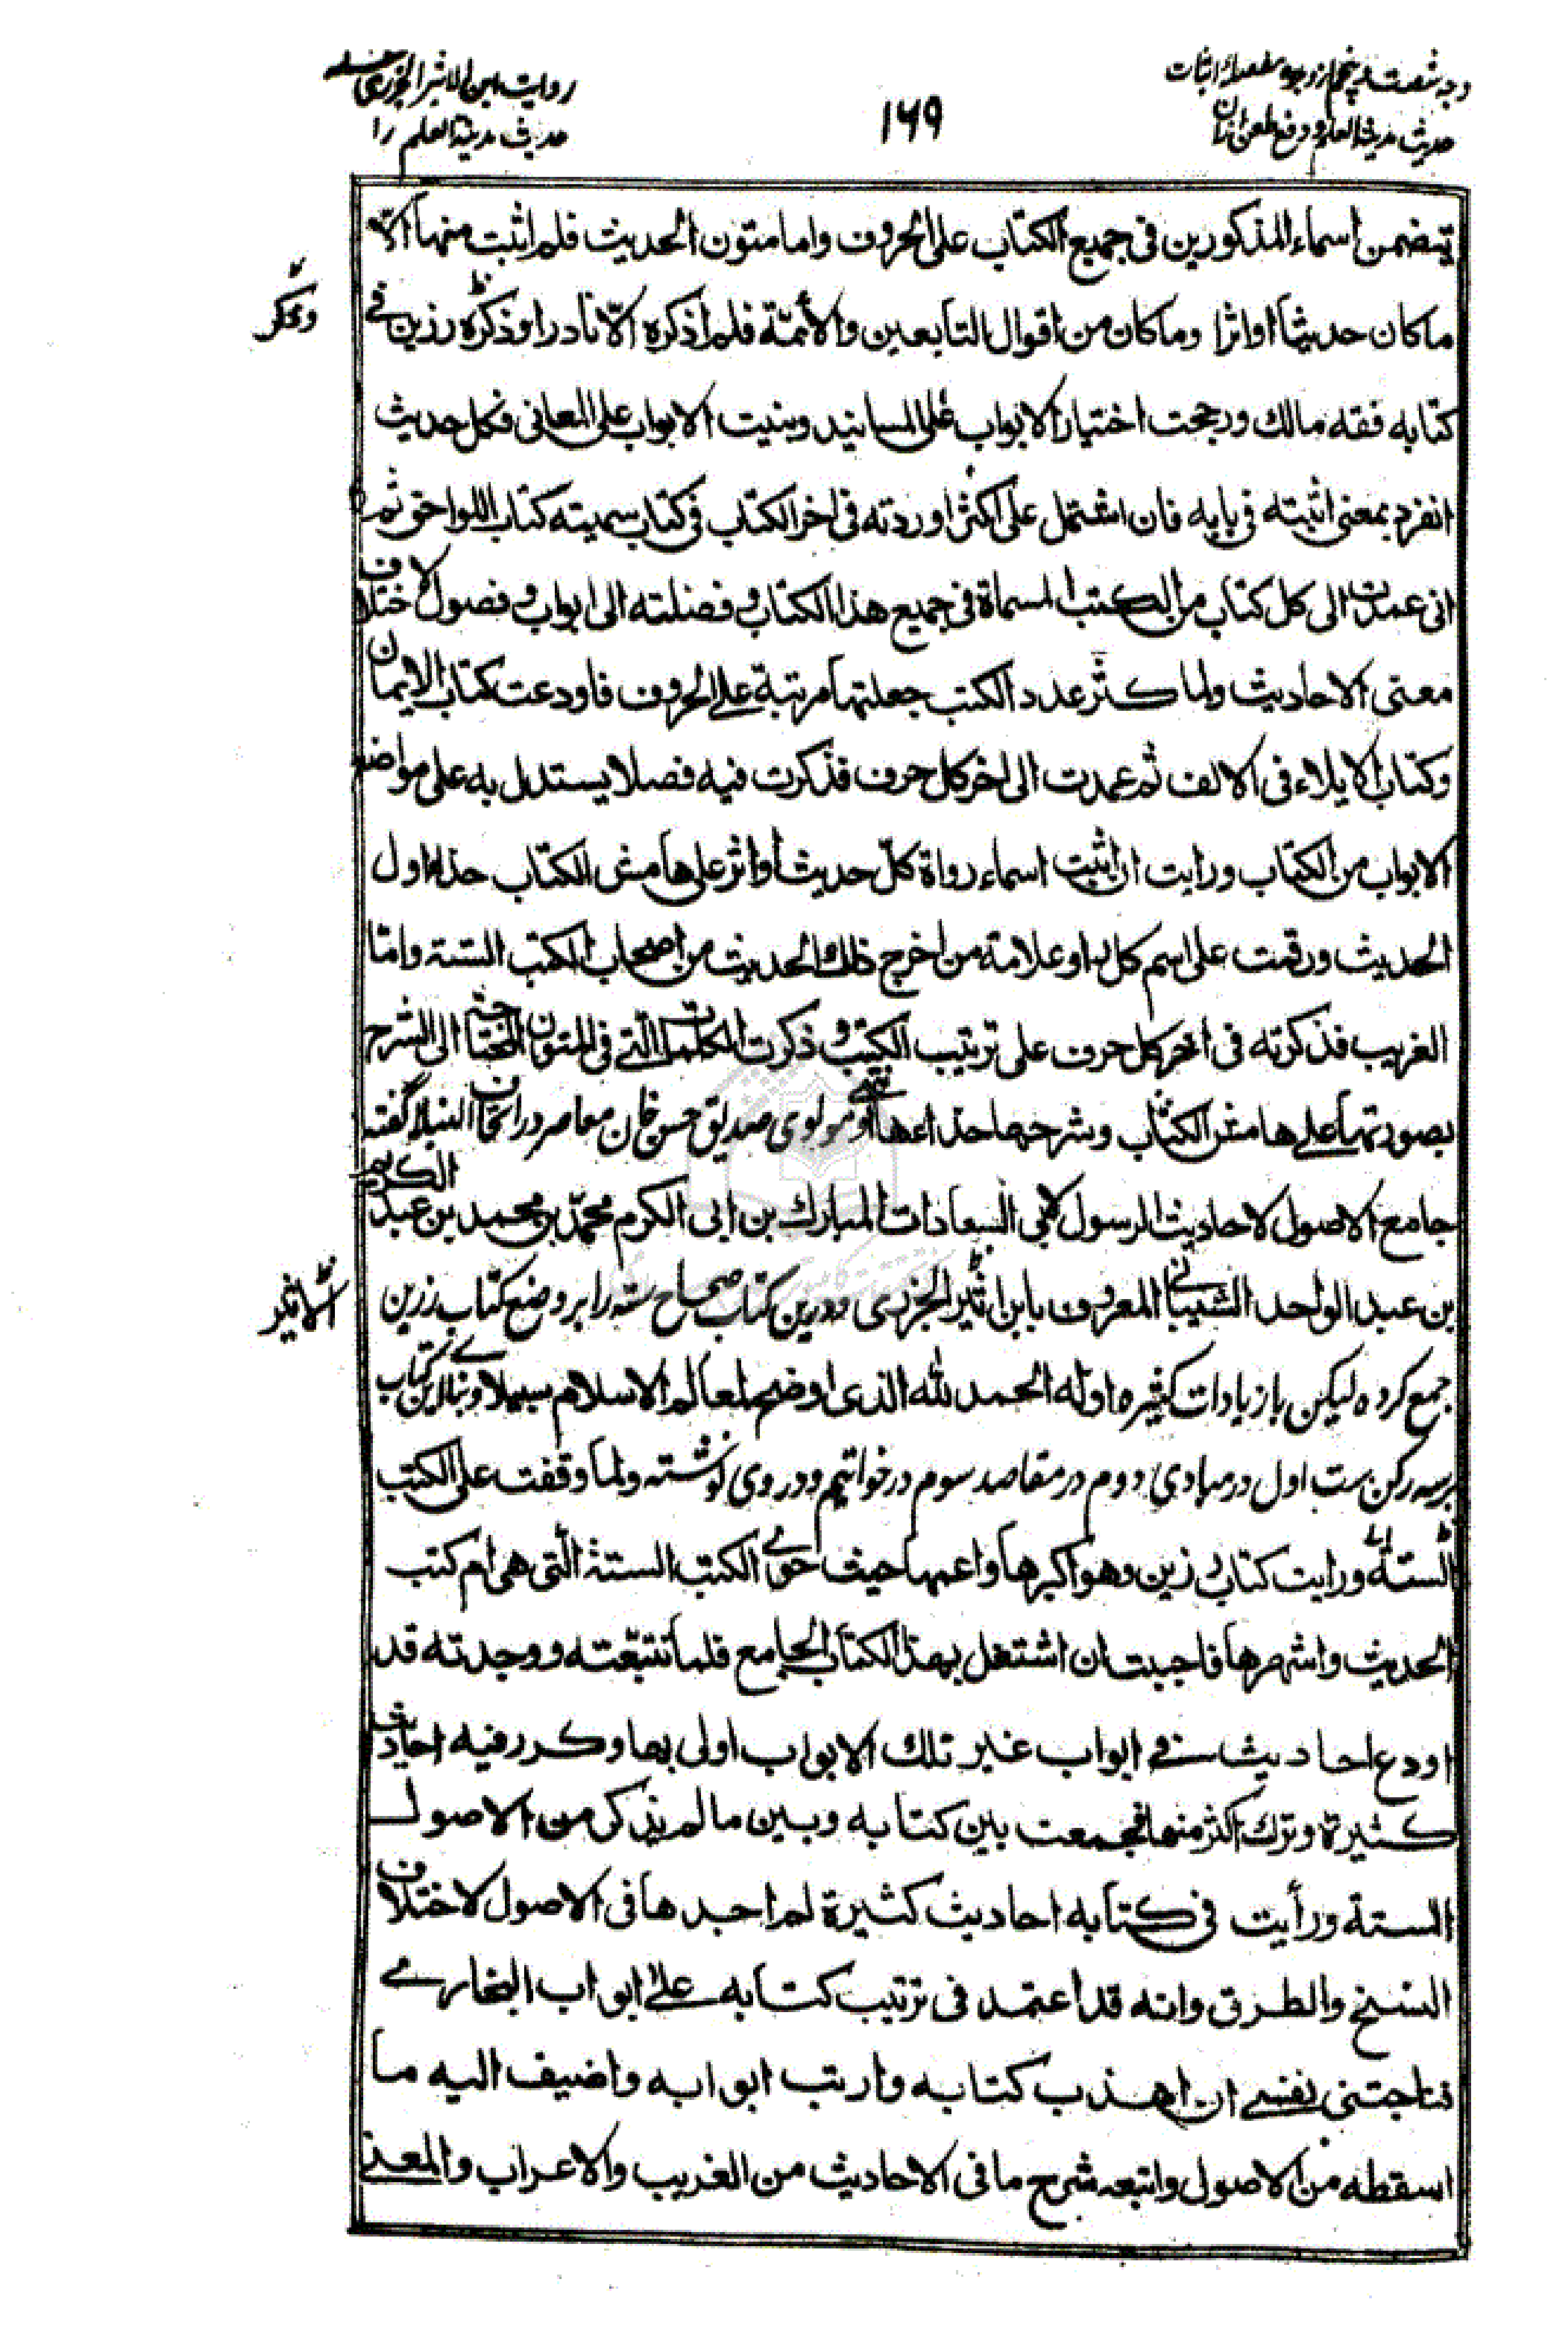 وجه شصت و پنجم از وجوه مفصله اثبات
حدیث مدینة العلم و دفع طعن از ان
۱۶۹
روایت ابن الاثیر الجزری
حدیث مدینة العلم را
یتضمن اسماء المذکورین فی جمیع الکتاب علی الحروف واما متون الحدیث فلم اثبت منها الّا
ما کان حدیثا او اثرا وما کان من اقوال التابعین والأئمّة فلم اذکره الّا نادرا وذکره رزین فی
وذکر
کتابه فقه مالك ورجحت اختیار الابواب علی المسانید وبنیت الابواب علی المعانی فکل حدیث
انفرد بمعنی اثبته فی بابه فان اشتمل علی اکثر اوردته فی اخر الکتاب فی کتاب سمیته کتاب اللواحق ثم
انی عمدت الی کل کتاب من الکتب المسماة فی جمیع هذا الکتاب و فصلته الی ابواب و فصول لاختلاف
معنی الاحادیث ولما کثر عدد الکتب جعلتها مرتبة علی الحروف فاودعت کتاب الایمان
وکتاب الایلاء فی الالف ثم عمدت الی اخر کل حرف فذکرت فیه فصلا یستدل به علی مواضع
الابواب من الکتاب ورایت ان اثبت اسماء رواة کلّ حدیث أو اثر علی هامش الکتاب حذاء اول
الحدیث ورقمت علی اسم کل راو علامة من اخرج ذلك الحدیث من اصحاب الکتب الستة وامّا
الغریب فذکرته فی اخر کل حرف علی ترتیب الکتب و ذکرت الکلمات التی فی المتون المحتاجة الی الشرح
بصورتها علی هامش الکتاب وشرحها حذاءها و مولوی صدیق حسن خان معاصر در اتحاف النبلا گفته
جامع الاصول لاحادیث الرسول لابی السعادات المبارك بن ابی الکرم محمّد بن محمد بن عبد الکریم
بن عبد الواحد الشیبانی المعروف بابن اثیر الجزری و درین کتاب صحاح سته را بر وضع کتاب رزین
الاثیر
جمع کرده لیکن با زیادات کثیره اوله الحمد لله الذی اوضح لمعالم الاسلام سبیلا و بنای این کتاب
بر سه رکن ست اول در مبادی دوم در مقاصد سوم در خواتیم و در وی نوشته ولما وقفت علی الکتب
الستة ورایت کتاب رزین وهو اکبرها واعمها حیث حوی الکتب الستة الّتی هی ام کتب
الحدیث واشهرها فاحببت ان اشتغل بهذا الکتاب الجامع فلما تتبّعته ووجدته قد
اودع احادیث فی ابواب غیر تلك الابواب اولی بها وکرر فیه احادیث
کثیرة وترك اکثر منها فجمعت بین کتابه وبین ما لم یذکر من الاصول
الستة ورأیت فی کتابه احادیث کثیرة لم اجدها فی الاصول لاختلاف
النسخ والطرق وانه قد اعتمد فی ترتیب کتابه علی ابواب البخاری
فناجتنی نفسی ان اهذب کتابه وارتب ابوابه واضیف الیه ما
اسقطه من الاصول واتبعه شرح ما فی الاحادیث من الغریب والاعراب والمعنی